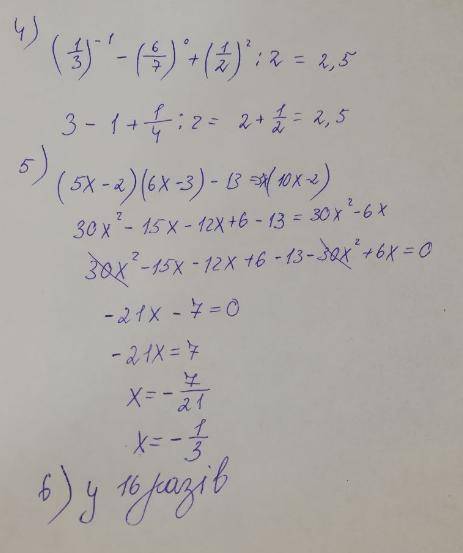 4)
(1/3)⁻¹ − (6/7)⁰ + (1/2)² : 2 = 2,5
3 − 1 + 1/4 : 2 = 2 + 1/2 = 2,5
5)
(5x − 2)(6x − 3) − 13 = (10x − 2)
30x² − 15x − 12x + 6 − 13 = 30x² − 6x
30x² − 15x − 12x + 6 − 13 − 30x² + 6x = 0
−21x − 7 = 0
−21x = 7
x = − 7/21
x = − 1/3
6) у 16 разів